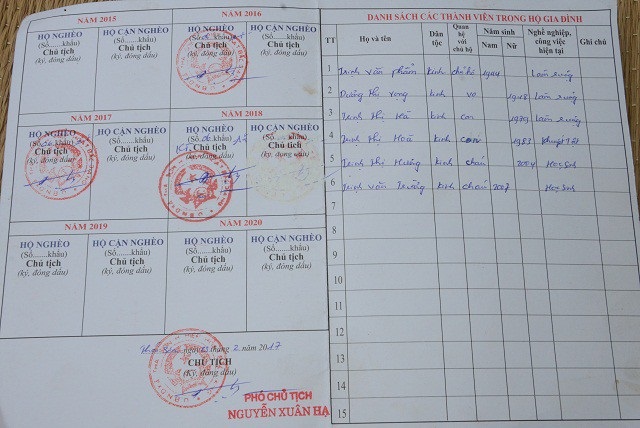 NĂM 2015
NĂM 2016
HỘ NGHÈO
(Số......khẩu)
Chủ tịch
(ký, đóng dấu)
HỘ CẬN NGHÈO
(Số......khẩu)
Chủ tịch
(ký, đóng dấu)
HỘ NGHÈO
Chủ tịch
(ký, đóng dấu)
HỘ CẬN NGHÈO
(Số......khẩu)
Chủ tịch
(ký, đóng dấu)
NĂM 2017
NĂM 2018
HỘ NGHÈO
Chủ tịch
(ký, đóng dấu)
HỘ CẬN NGHÈO
(Số......khẩu)
Chủ tịch
(ký, đóng dấu)
HỘ NGHÈO
HỘ CẬN NGHÈO
Chủ tịch
NĂM 2019
NĂM 2020
HỘ NGHÈO
(Số......khẩu)
Chủ tịch
(ký, đóng dấu)
HỘ CẬN NGHÈO
(Số......khẩu)
Chủ tịch
(ký, đóng dấu)
HỘ NGHÈO
(Số......khẩu)
Chủ tịch
(ký, đóng dấu)
HỘ CẬN NGHÈO
(Số......khẩu)
Chủ tịch
(ký, đóng dấu)
ngày 13 tháng 2 năm 2017
CHỦ TỊCH
(Ký, đóng dấu)
PHÓ CHỦ TỊCH
NGUYỄN XUÂN HẠ
DANH SÁCH CÁC THÀNH VIÊN TRONG HỘ GIA ĐÌNH
TT
Họ và tên
Dân tộc
Quan hệ với chủ hộ
Năm sinh
Nam
Nữ
Nghề nghiệp, công việc hiện tại
Ghi chú
1 Trịnh Văn Phẩm Kinh chủ hộ 1944 Làm ruộng
2 Dương Thị Kinh vợ 1948 Làm ruộng
3 Trịnh Thị Hà Kinh con 1979 Làm ruộng
4 Trịnh Thị Hoà Kinh con 1983 khuyết tật
5 Trịnh Thị Hương Kinh cháu 2004 Học sinh
6 Trịnh Văn Trường Kinh cháu 2007 Học sinh
7
8
9
10
11
12
13
14
15